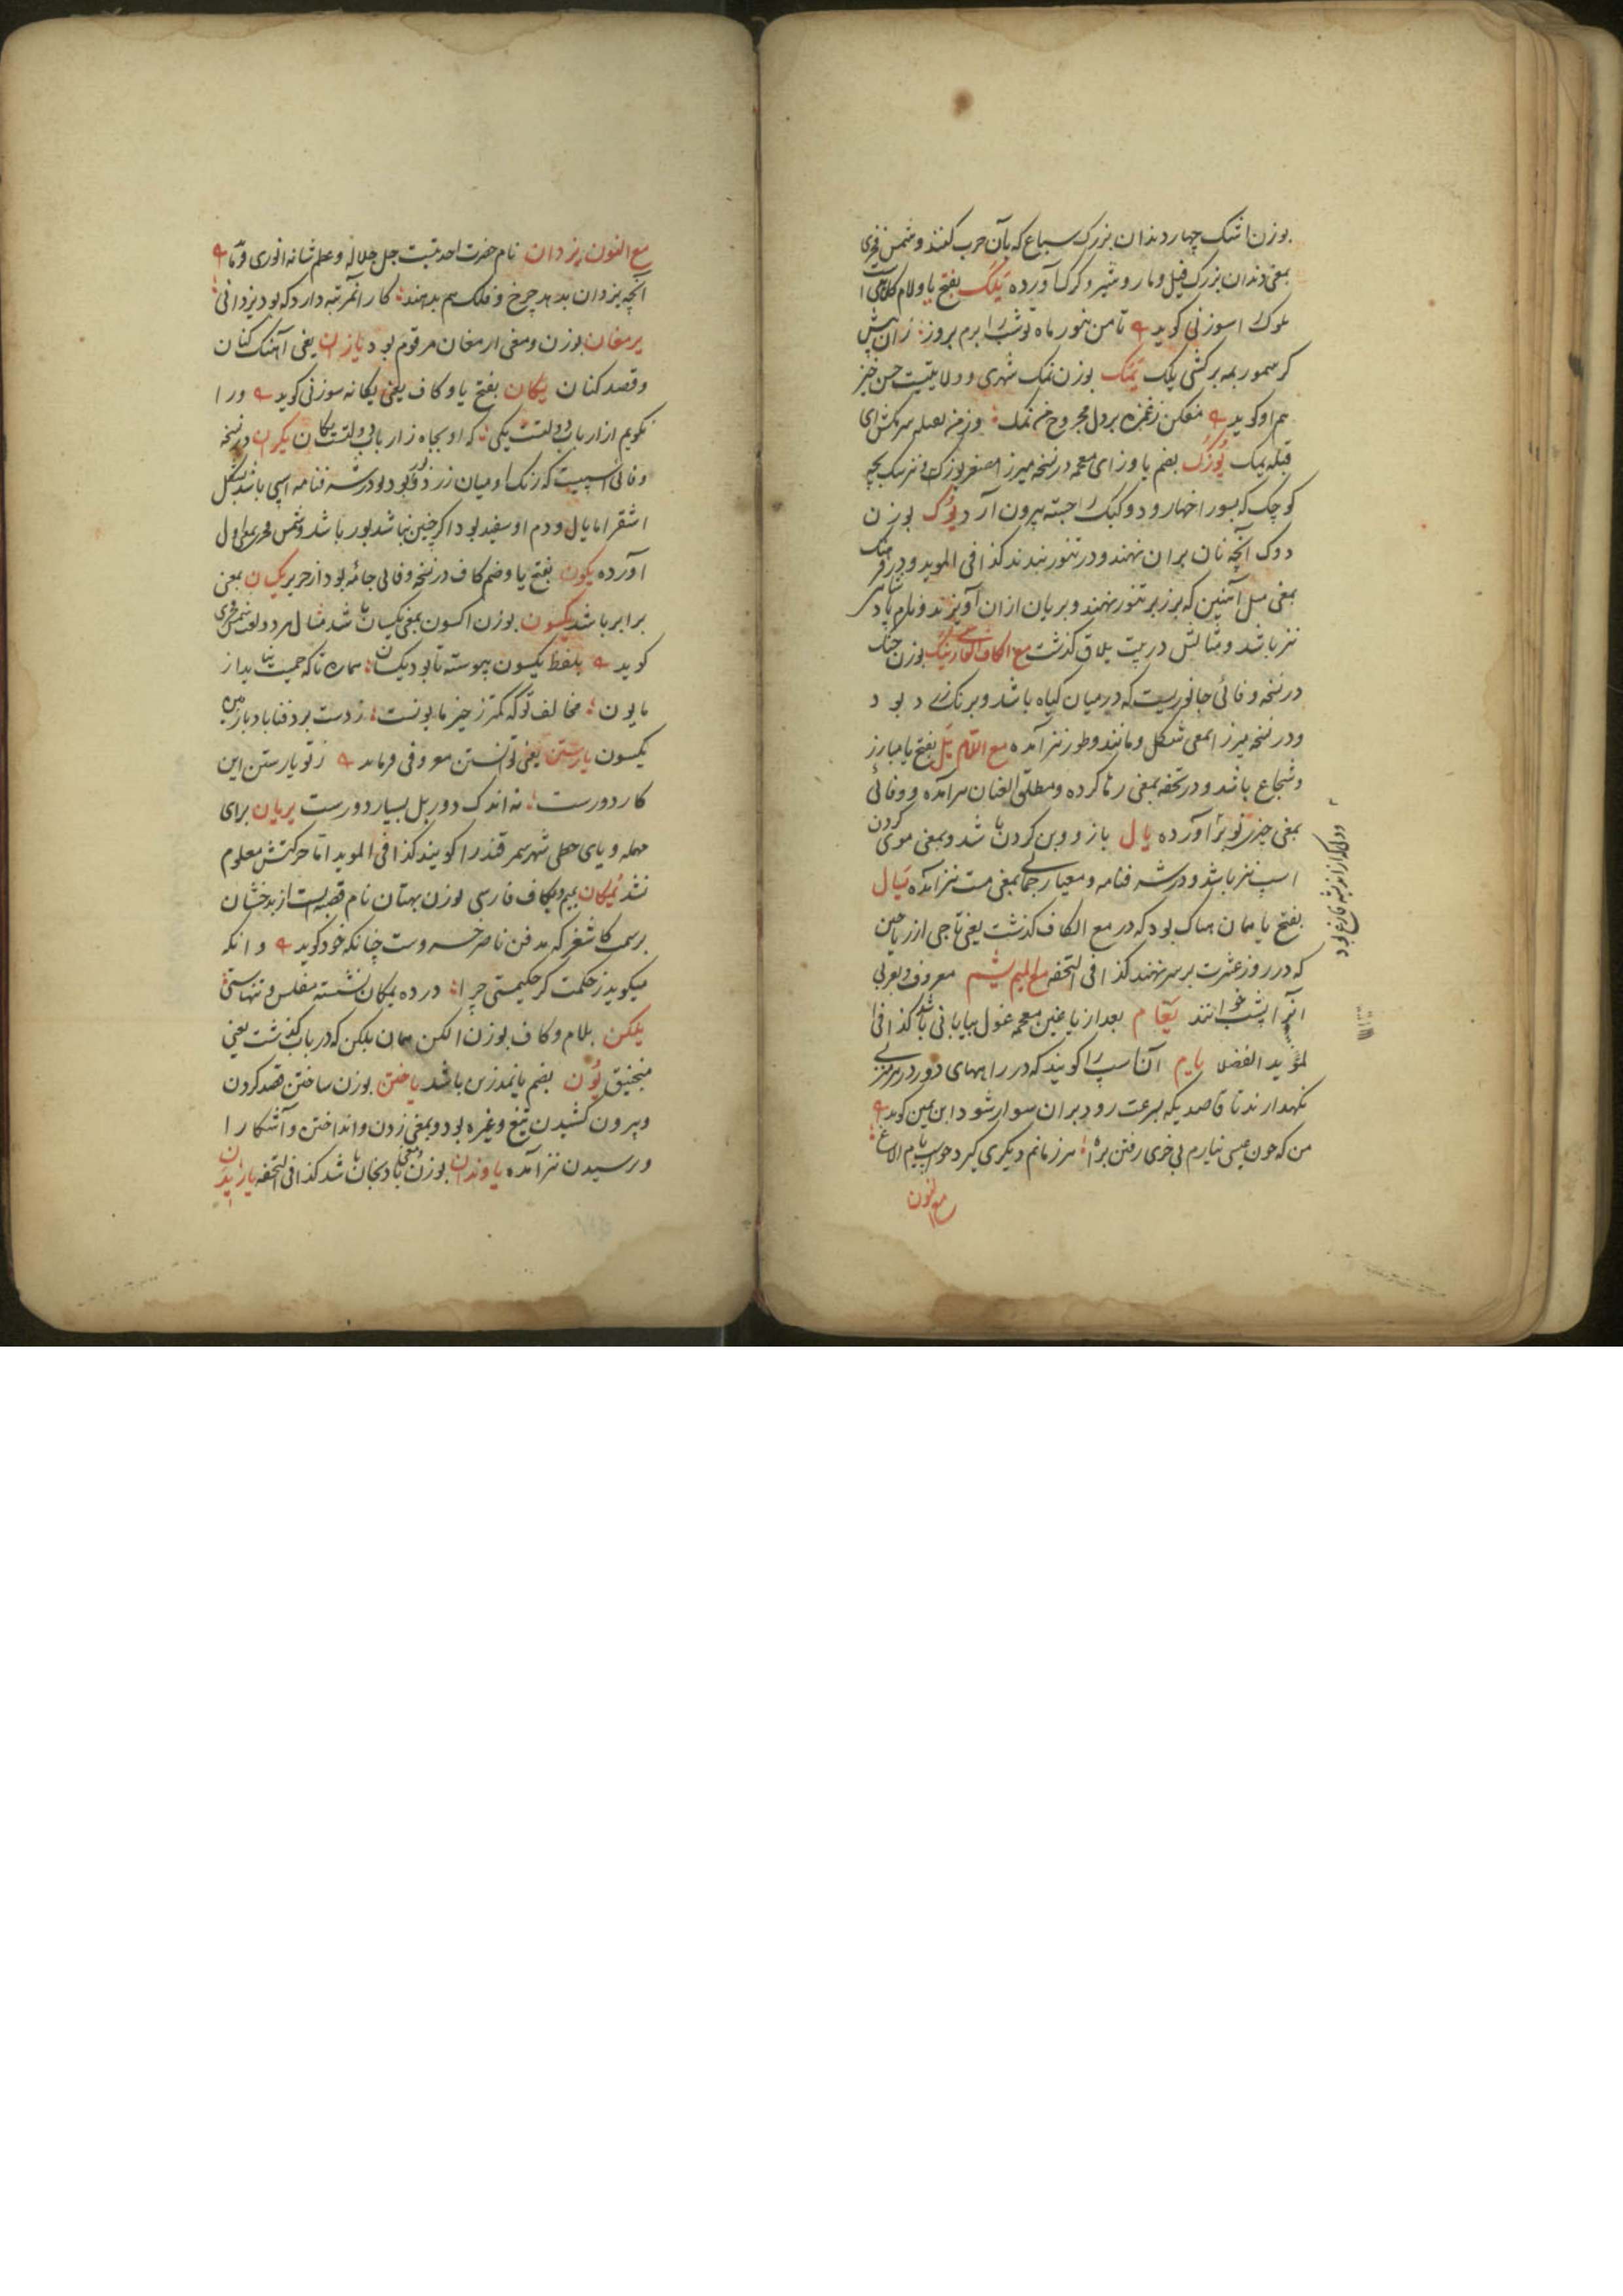 بوزن اشک چهار دندان بزرک سباع که بآن حرب کنند و شمس فخری
بمعنی دندان بزرک فیل و مار و شیر و کرک آورده یلک بفتح یا و لام کلاهی است
ملوک را سوزنی کوید تا من بنور ماه تو شب را برم بروز زان پیش
کر سمور بمه برکشی یلک یمک بوزن نمک شهری و ولایتیست حسن خیز
هم او کوید مفکن ز غمزه بر دل مجروح من نمک وز من بقبله سر مکش ای
قبله یمک یوزک بضم یا و زای معجمه در نسخه میرزا مصغر یوز که نیز سک بچه
کوچک که بسوراخها رود و کبک را جسته بیرون آرد یوک بوزن
دوک آنچه نان بران نهند و در تنور بندند کذا فی الموید و در فرهنک
بمعنی میل آهنین که بر زبر تنور نهند و بریان ازان آویزند و نام پادشاهی
نیز باشد و مثالش در بیت یلاق کذشت مع الکاف الفارسی یرنک بوزن جنک
در نسخه وفائی جانوریست که در میان کیاه باشد و برنک بود
و در نسخه میرزا بمعنی شکل و مانند و طور نیز آمده مع اللام یل بفتح یا مبارز
و شجاع باشد و در تحفه بمعنی رها کرده و مطلق العنان هم آمده و وفائی
بمعنی چیز نوبر آورده یال بازو و بن کردن باشد و بمعنی موی کردن
اسپ نیز باشد و در شرفنامه و معیار جمالی بمعنی مست نیز آمده یتال
بفتح یا همان هماک بود که در مع الکاف کذشت یعنی تاجی از ریاحین
که در روز عشرت بر سر نهند کذا فی التحفه مع المیم یشم معروف و بعربی
آنرا یشب خوانند یغام بعد از یا غین معجمه غول بیابانی باشد کذا فی
لمؤید الفضلا یام آن اسپ را کویند که در راههای دور در هر منزلی
نکهدارند تا قاصد یکه بسرعت رود بران سوار شود ابن یمین کوید
من که چون عیسی نیارم بی خری رفتن براه هر زمانم دیکری کیرد چو اسپ یام الاغ
مع النون
مع النون یزدان نام حضرت احدیتست جل جلاله و عظم شانه انوری فرماید
آنچه یزدان بدهد چرخ و فلک هم بدهند کار آنمرتبه دارد که بود یزدانی
یرمغان بوزن و معنی ارمغان مرقوم بود یازان یعنی آهنک کنان
و قصد کنان یکان بفتح یا و کاف یعنی یکانه سوزنی کوید ورا
نکویم از ارباب دولتست یکی که او بجاه ز ارباب دولتست یکان یکران در نسخه
وفائی اسپیست که رنک او میان زرد و بور بود و در شرفنامه اسپی باشد بشکل
اشقر اما یال و دم او سفید بود اکر چنین نباشد بور باشد و شمس فخری بمعنی اول
آورده یکون بفتح یا و ضم کاف در نسخه وفائی جامه بود از حریر یکسان بمعنی
برابر باشد یکسون بوزن اکسون بمعنی یکسان باشد مثال هر دو لغت شمس فخری
کوید بلفظ یکسون پیوسته تا بود یکسان هماره تا که حمیت
مابون مخالف تو که کمتر ز حیز مابونست ز دست برد فنا باد با زمین
یکسون یارستن یعنی توانستن معروفی فرماید ز تو یارستن این
کار دورست نه اندک دور بل بسیار دورست یریان برای
مهمله و یای حطی شهر سمرقند را کویند کذا فی الموید اما حرکتش معلوم
نشد یمکان بمیم و کاف فارسی بوزن بهتان نام قصبه ایست از بدخشان
برسمت کاشغر که مدفن ناصر خسروست چنانکه خود کوید و انکه
میکوید ز حکمت کر حکیمستی چرا در ده یمکان نشسته مفلس و تنهاستی
یلکن بلام و کاف بوزن الکن همان بلکن که در باب کذشت یعنی
منجنیق یون بضم یا نمد زین باشد یاختن بوزن ساختن قصد کردن
و بیرون کشیدن تیغ و غیره بود و بمعنی زدن و انداختن و آشکارا
و رسیدن نیز آمده یاوندان بوزن و معنی بادنجان باشد کذا فی التحفه یازیدن